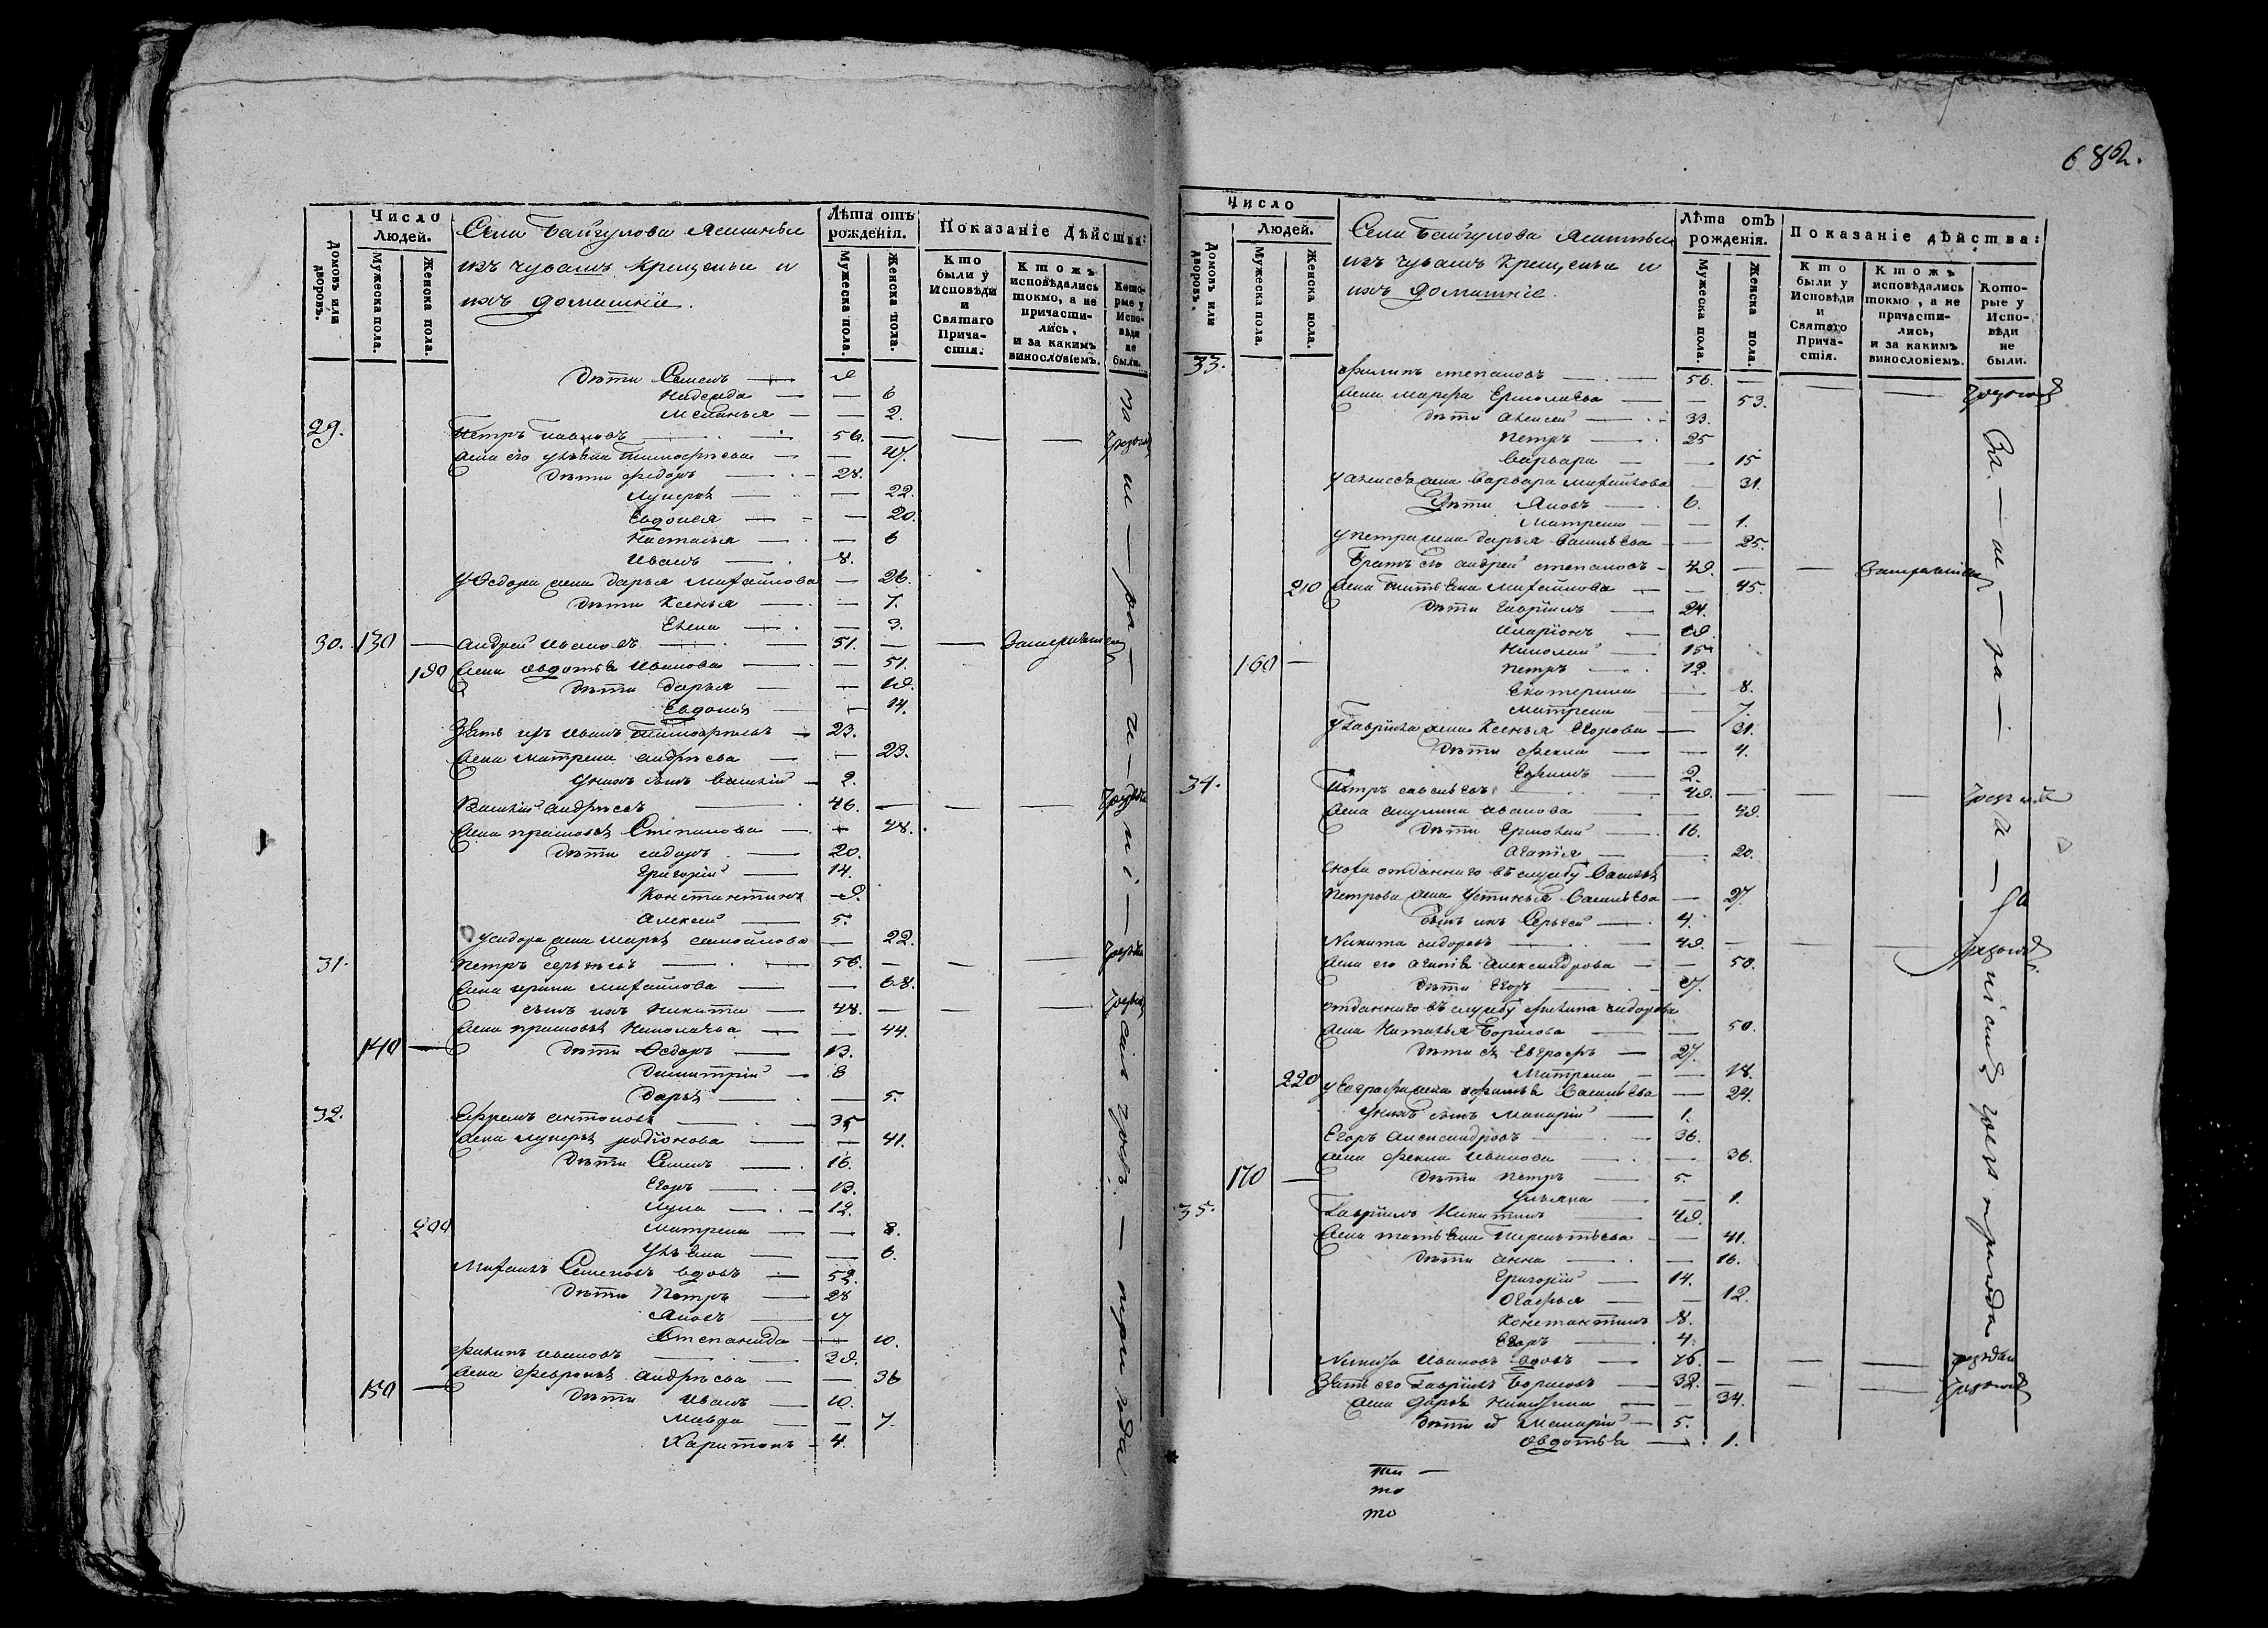 682.
Число
Людей.
Домовъ или дворовъ.
Мужеска пола.
Женска пола.
Села Байгулова Ясашныя
изъ чувашъ крещеные и
ихъ домашніе.
Лѣта отъ рожденія.
Мужеска пола.
Женска пола.
Показаніе Дѣйства:
Кто были у Исповѣди и Святаго Причастія.
Ктожъ исповѣдались токмо, а не причастились, и за какимъ винословіемъ.
Которые у Исповѣди не были.
Дѣти Семенъ — 9
Надежда — — 6
Меланья — — 2.
29. Петръ Ивановъ — 56. —
жена его Ульяна Тимофѣева — — 47.
Дѣти Федоръ — 28.
Лукерья — — 22.
Евдокея — — 20.
Настасья — — 6
Иванъ — 8.
У Федора жена Дарья Михайлова — 26.
Дѣти Ксенья — — 7.
Елена — — 3.
30. 130 — Андрей Ивановъ — 51. —
190 жена Овдотья Иванова — — 51.
Дѣти Дарья — — 19.
Евдокея — 14.
Зять ихъ Иванъ Тимофѣевъ — 23.
жена Матрена Андрѣева — — 23.
У нихъ сынъ Василій — 2.
Василій Андрѣевъ — 46. —
жена Прасковья Степанова — 48.
Дѣти Сидоръ — 20.
Григорій — 14.
Константинъ — 9.
Алексей — 5.
У Сидора жена Марья Самойлова — 22.
31. Петръ Сергѣевъ — 56. —
жена Ирина Михайлова — — 68.
сынъ ихъ Никита — 48. —
жена Прасковья Николаева — — 44.
140 — Дѣти Федоръ — 13.
Димитрій — 8
Дарья — — 5.
32. Ефремъ Антоновъ — 35
жена Лукерья Родіонова — — 41.
Дѣти Семенъ — 16.
Егоръ — 13.
Лука — 12.
200 Матрена — — 8.
Ульяна — — 6.
Михаилъ Семеновъ вдовъ — 52.
Дѣти Петръ — 28
Яковъ — 9
Степанида — — 10.
Филипъ Ивановъ — 39.
жена Февронья Андрѣева — — 36
150 — Дѣти Иванъ — 10.
Мавра — — 7.
Харитонъ — 4.
Число
Людей.
Домовъ или дворовъ.
Мужеска пола.
Женска пола.
Села Байгулова Ясашныя
изъ чувашъ крещеные и
ихъ домашніе.
Лѣта отъ рожденія.
Мужеска пола.
Женска пола.
Показаніе дѣйства:
Кто были у Исповѣди и Святаго Причастія.
Ктожъ исповѣдались токмо, а не причастились, и за какимъ винословіемъ.
Которые у Исповѣди не были.
33. Филипъ Степановъ — 56. —
жена Марфа Ермолаева — — 53.
Дѣти Алексей — 33.
Петръ — 25
Варвара — — 15
У Алексея жена Варвара Михайлова — 31.
Дѣти Яковъ — 6.
Матрена — — 1.
У Петра жена Дарья Васильева — — 25.
Братъ его Андрей Степановъ — 49. —
210 жена Татьяна Михайлова — — 45.
Дѣти Гавріилъ — 24.
Иларіонъ — 19.
Николай — 15
160 — Петръ — 12.
Екатерина — 8.
Матрена — — 7.
У Гаврила жена Ксенья Егорова — 31.
Дѣти Фекла — — 4.
Ефимъ — 2.
34. Петръ Савельевъ — 49. —
жена Акулина Иванова — — 49.
Дѣти Ермолай — 16.
Агапія — — 20.
Сноха отданнаго въ службу Василья
Петрова жена Устинья Васильева — 27.
Сынъ ихъ Сергей — 4.
Никита Сидоровъ — 49. —
жена его Агапія Александрова — — 50.
Дѣти Егоръ — 9.
отданнаго въ службу Филипа Сидорова
жена Наталья Борисова — — 50.
Дѣти ея Евграфъ — 27.
Матрена — — 18.
220 У Евграфа жена Софья Васильева — 24.
У нихъ сынъ Макарій — 1.
Егоръ Александровъ — 36.
жена Фекла Иванова — — 36.
170 — Дѣти Петръ — 5.
Ульяна — — 1.
35. Гавріилъ Никитинъ — 49.
жена Татьяна Терентьева — — 41.
Дѣти Анна — — 16.
Григорій — 14.
Огафья — — 12.
Константинъ 8.
Егоръ — 4.
Ивановъ вдовъ — 76. —
Зять его Гавріилъ Борисовъ — 32. —
жена Дарья — — 34.
Дѣти Макарій — 5.
Овдотья — 1.
то
то